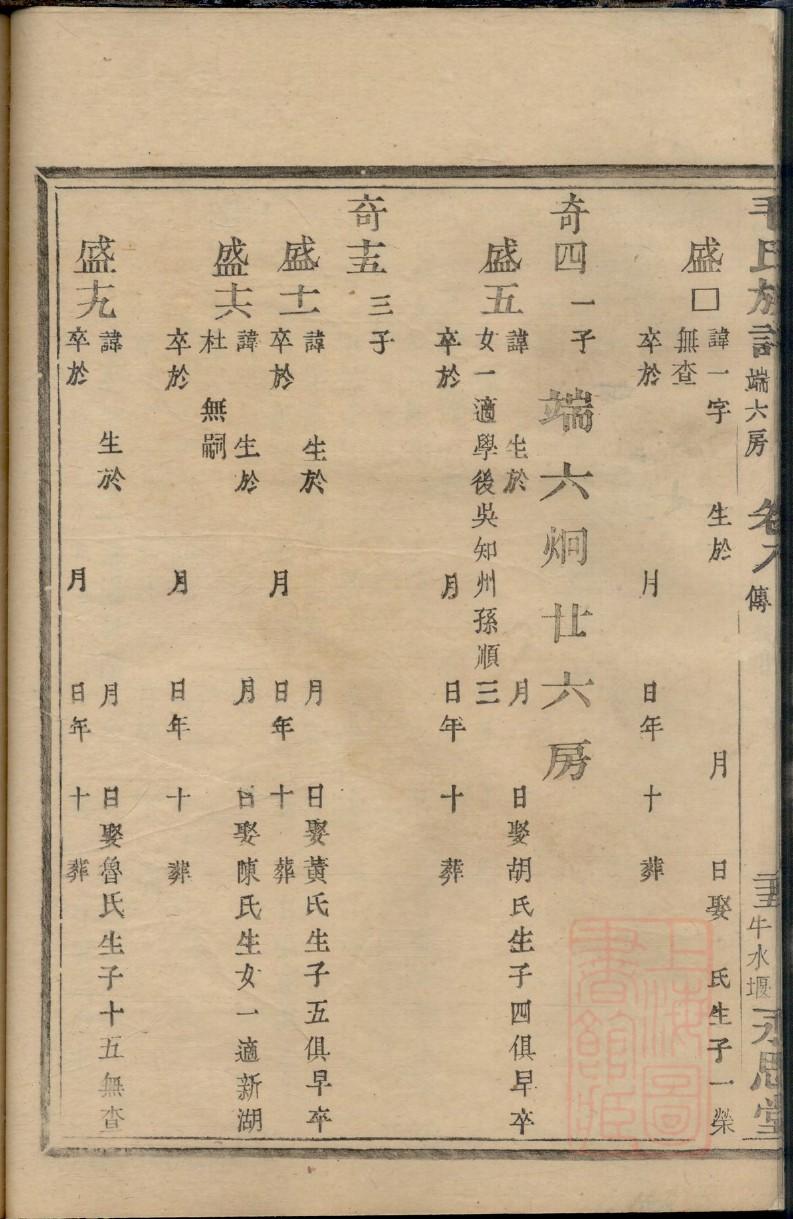 毛氏族譜 端六房 卷八 傳 牛水堰 永思堂
盛□ 諱一字 生於 月 日娶 氏生子一榮
無查
卒於 月 日年 十 葬
奇四 一子 端六炯廿六房
盛五 諱 生於 月 日娶胡氏生子四俱早卒
女一適學後吳知州孫順三
卒於 月 日年 十 葬
奇十五 三子
盛十二 諱 生於 月 日娶黃氏生子五俱早卒
卒於 月 日年 十 葬
盛十六 諱 生於 月 日娶陳氏生女一適新湖
杜 無嗣
卒於 月 日年 十 葬
盛十九 諱 生於 月 日娶魯氏生子十五無查
卒於 月 日年 十 葬
上海圖書館藏